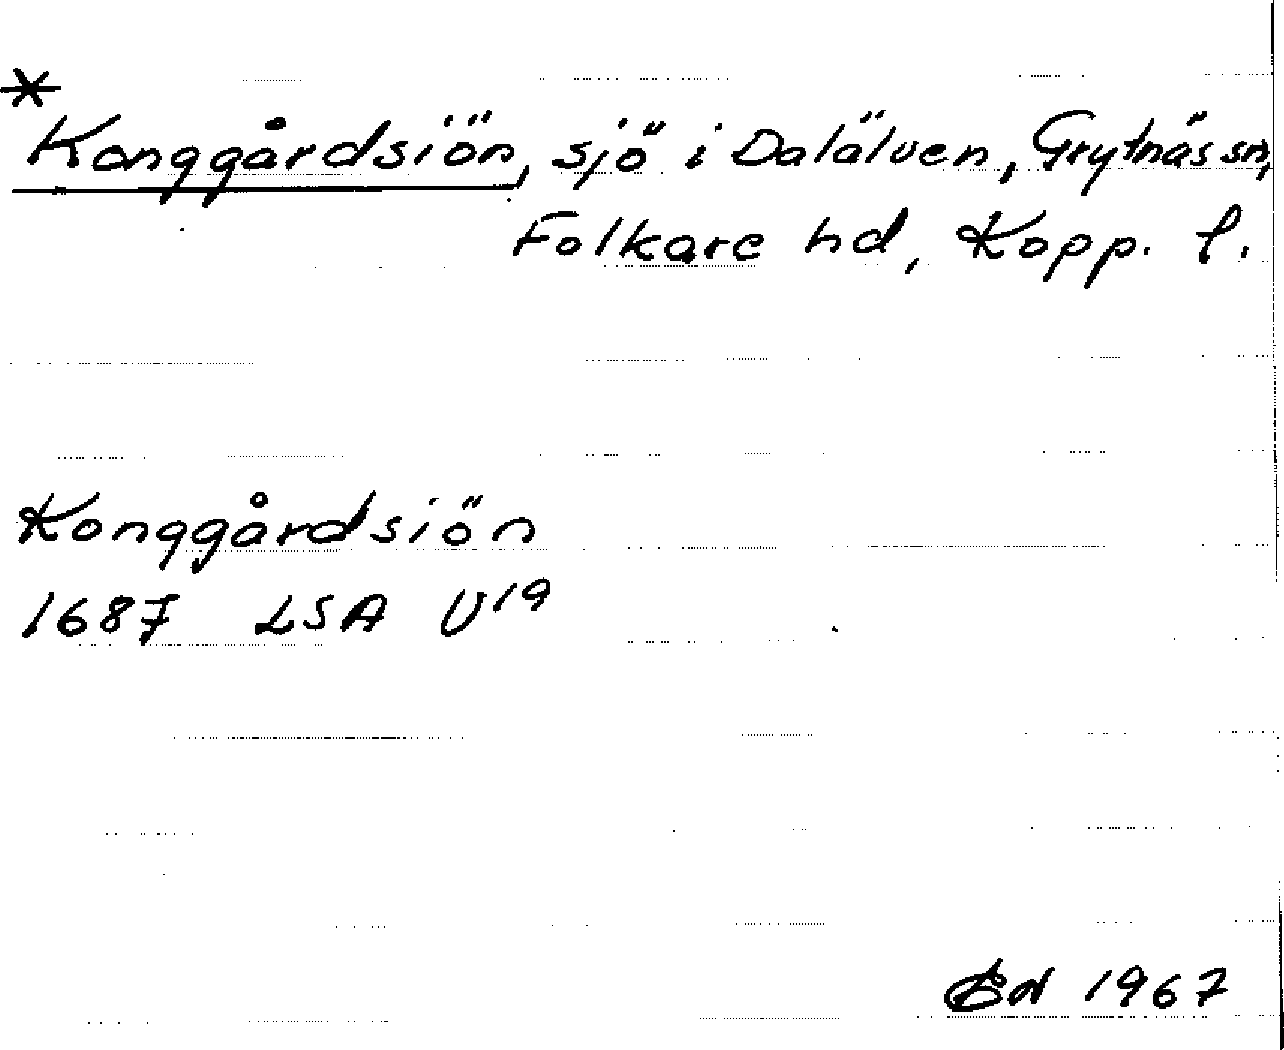 *
Konggårdsiön, sjö i Dalälven, Grytnäs sn,
Folkare hd, Kopp. l.
Konggårdsiön
1687 LSA U19
1967